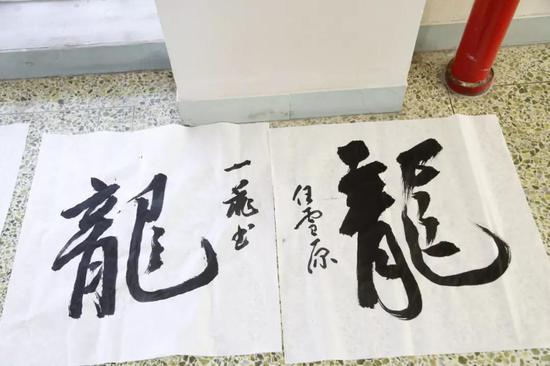 龍
一 书
龍
任雪原